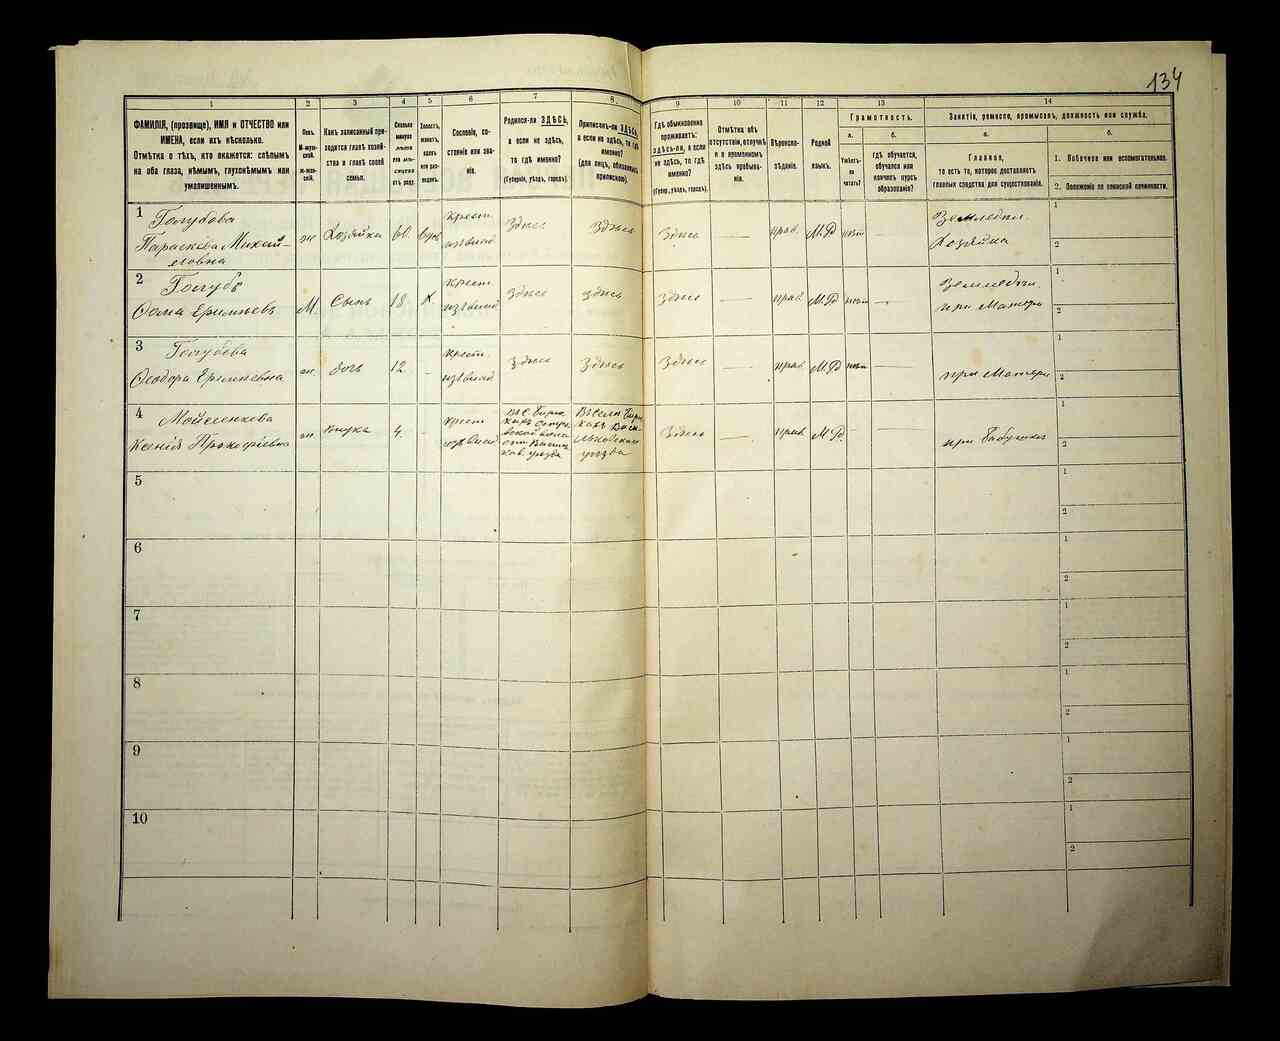 134
1
2
3
4
5
6
7
8
9
10
11
12
13
14
ФАМИЛІЯ, (прозвище), ИМЯ и ОТЧЕСТВО или
ИМЕНА, если ихъ нѣсколько.
Отмѣтка о тѣхъ, кто окажется: слѣпымъ
на оба глаза, нѣмымъ, глухонѣмымъ или
умалишеннымъ.
Полъ.
М-муж-
ской.
ж-жен-
скій.
Какъ записанный при-
ходится главѣ хозяй-
ства и главѣ своей
семьи.
Сколько
минуло
лѣтъ
или мѣ-
сяцевъ
отъ роду.
Холостъ,
женатъ,
вдовъ
или раз-
веденъ.
Сословіе, со-
стояніе или зва-
ніе.
Родился-ли ЗДѢСЬ,
а если не здѣсь,
то гдѣ именно?
(Губернія, уѣздъ, городъ).
Приписанъ-ли ЗДѢСЬ,
а если не здѣсь, то гдѣ
именно?
(для лицъ, обязанныхъ
припискою).
Гдѣ обыкновенно
проживаетъ:
здѣсь-ли, а если
не здѣсь, то гдѣ
именно?
(Губерн., уѣздъ, городъ).
Отмѣтка объ
отсутствіи, отлучкѣ
и о временномъ
здѣсь пребыва-
ніи.
Вѣроиспо-
вѣданіе.
Родной
языкъ.
Грамотность.
а.
Умѣетъ-
ли
читать?
б.
гдѣ обучается,
обучался или
кончилъ курсъ
образованія?
Занятіе, ремесло, промыселъ, должность или служба.
а.
Главное,
то есть то, которое доставляетъ
главныя средства для существованія.
б.
1. Побочное или вспомогательное.
2. Положеніе по воинской повинности.
1
Голубова
Параскева Михай-
ловна
ж
Хозяйка
60
вдов
крест.
Здѣсь
Здѣсь
Здѣсь
—
прав
М.Р
нѣт
—
Земледѣл.
Хозяйка
1
2
2
Голубъ
Фома Еремѣевъ
М.
Сынъ
18
х
крест.
Здѣсь
здѣсь
Здѣсь
—
прав
М.Р
нѣт
—
Земледѣл.
при Матери
1
2
3
Голубова
Феодора Еремѣевна
ж.
дочь
12
-
крест.
Здѣсь
Здѣсь
Здѣсь
—
прав
М.Р
нѣт
—
при Матери
1
2
4
Мойсеенкова
Ксенія Прокофіевна
ж.
внука
4
-
крест
уѣзда
уѣзда
Здѣсь
—
прав
М.Р.
-
—
при бабушкѣ
1
2
5
1
2
6
1
2
7
1
2
8
1
2
9
1
2
10
1
2